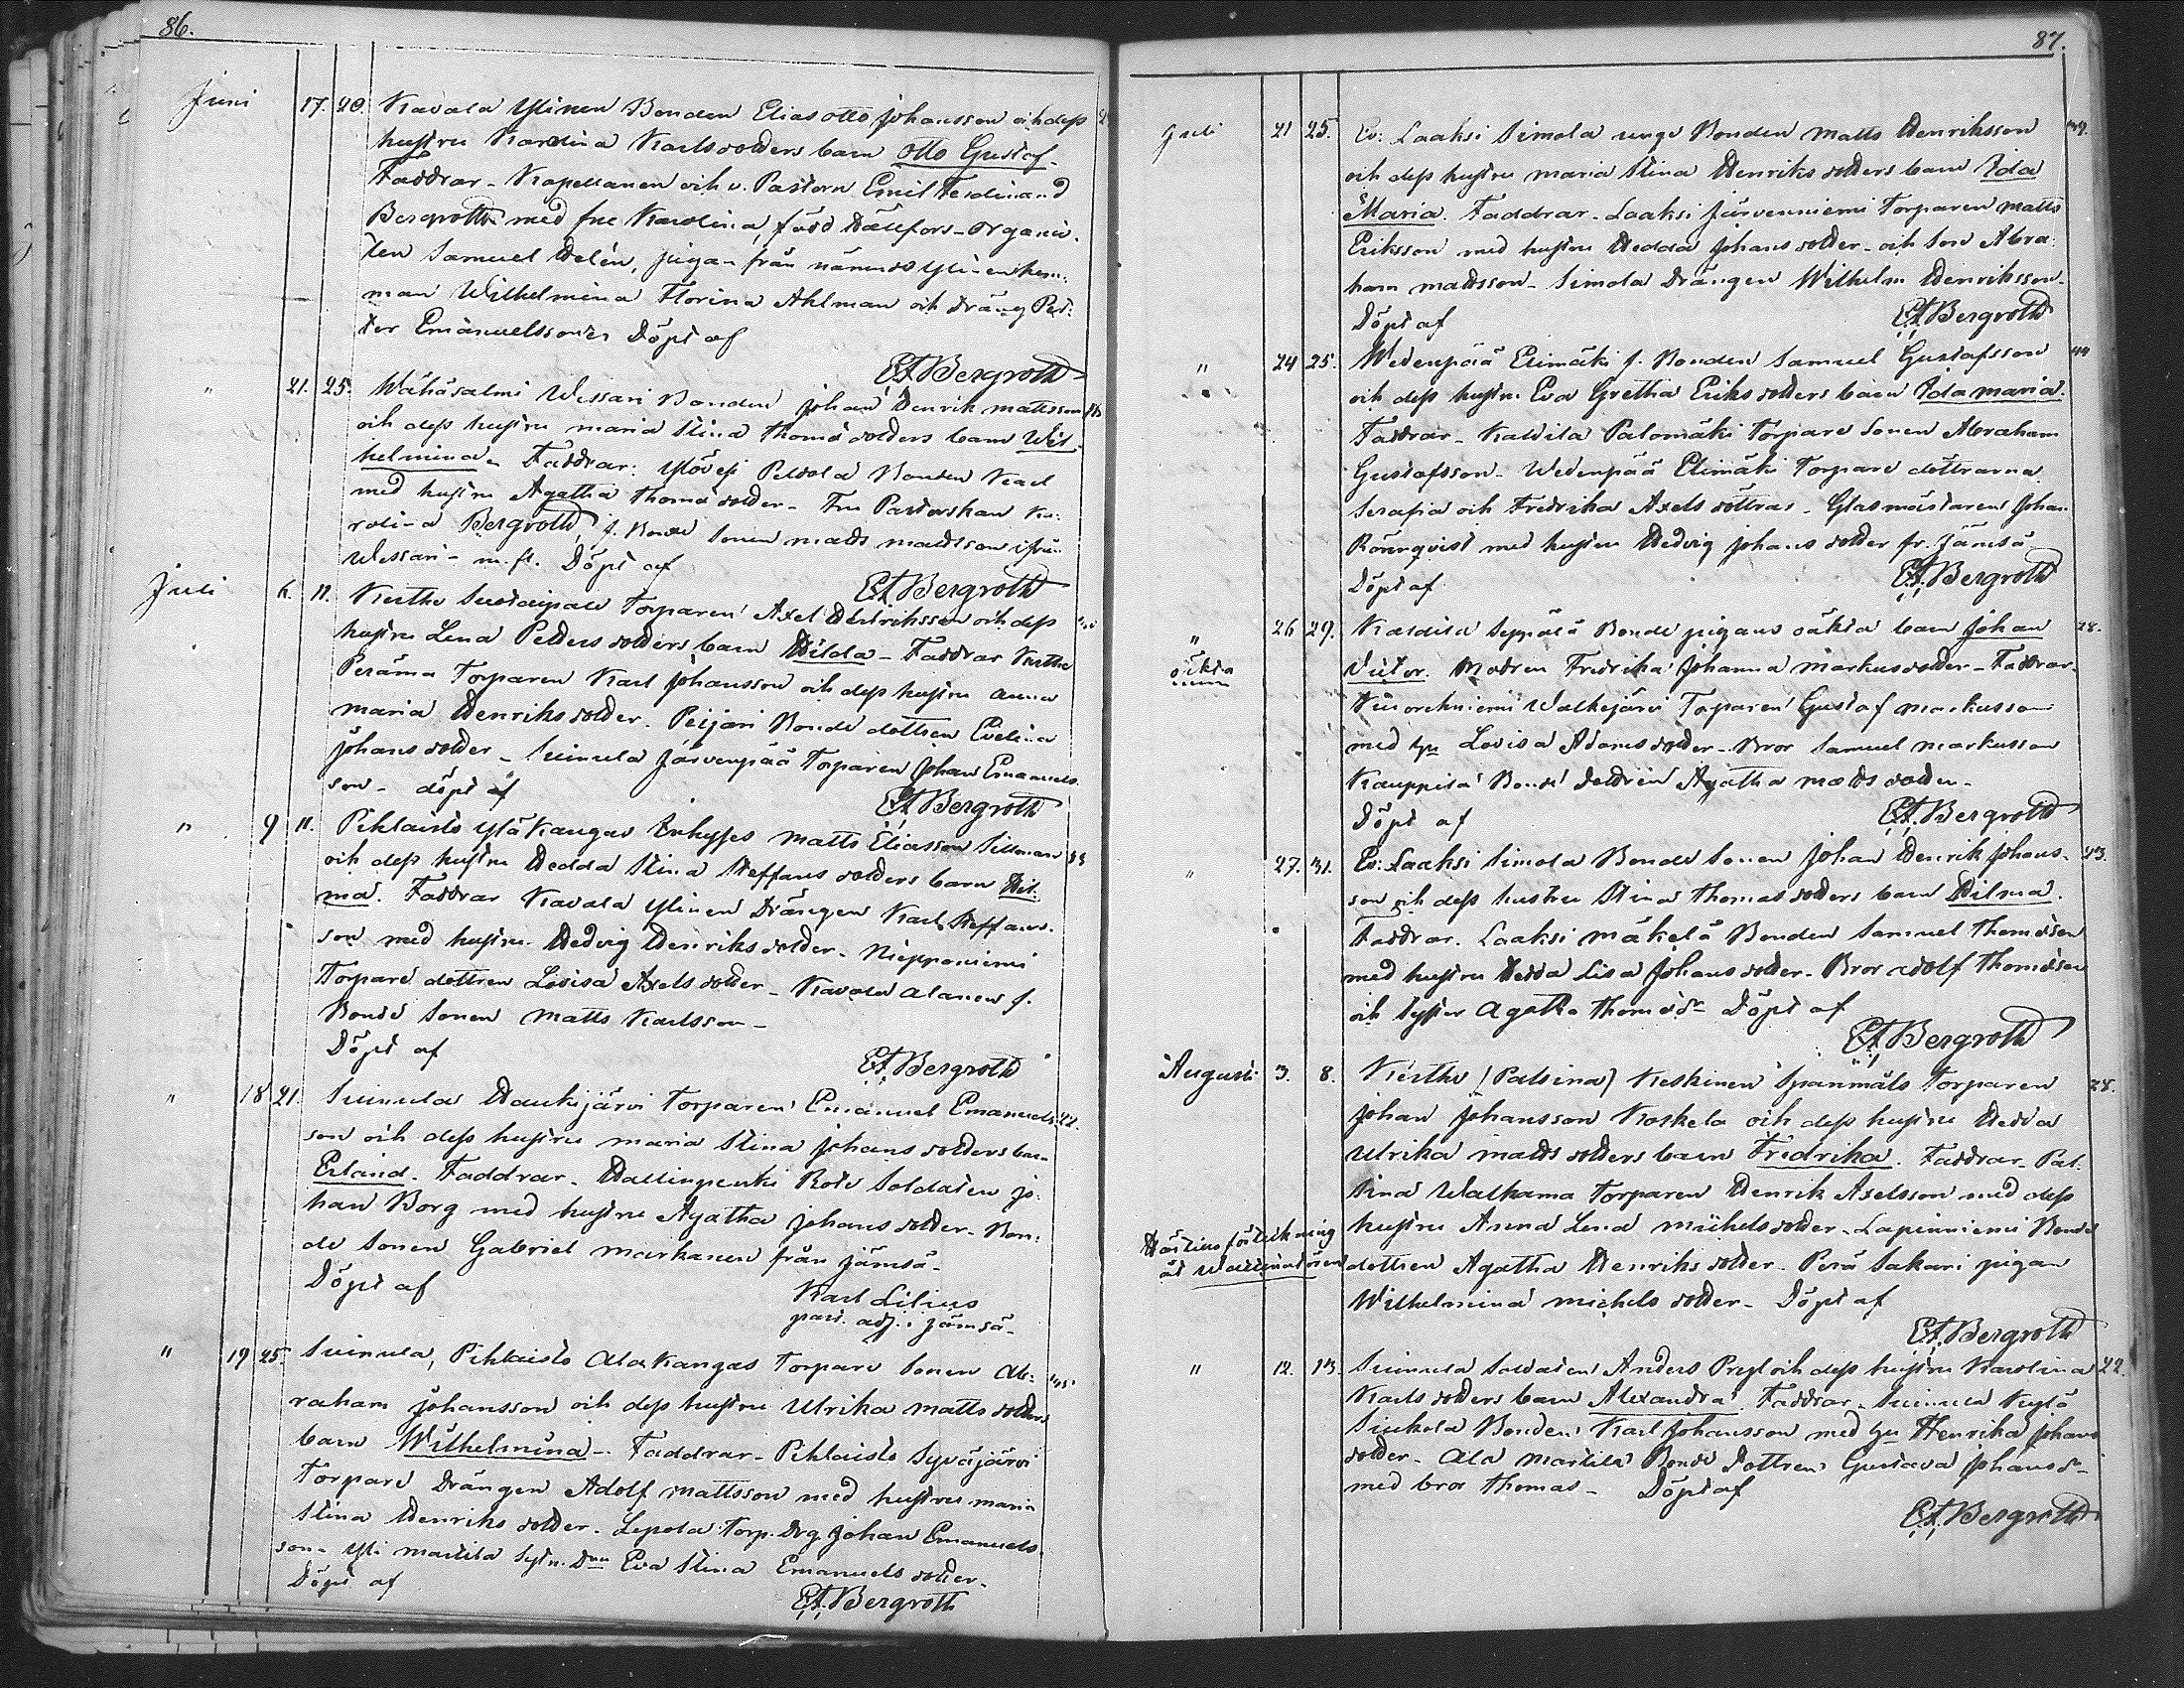 86.
Juni 17. 20. Kavala Ylinen Bonden Elias Otto Johansson och dess
hustru Karolina Karlsdotters barn Otto Gustaf-
Faddrar- Kapellanen och v. Pastorn Emil Ferdinand
Bergroth med fru Karolina, född Hällfors- Organis-
ten Samuel Helén, pigan från nämnde Ylinen hem-
man Wilhelmina Florina Ahlman och dräng Pet-
ter Emanuelsson Döpt af
E.F. Bergroth
" 21. 25 Wähäsalmi Wessari Bonden Johan Henrik Mattsson
och dess hustru Maria Stina Thomasdotters barn Wil-
helmina. Faddrar: Ylövesi Peltola Bonden Karl
med hustru Agatha Thomasdotter- Fru Pastorskan Ka-
rolina Bergroth, f. Bonde Sonen Matts Mattsson ifrån
Wessari- m.fl. Döpt af
E.F. Bergroth
Juli 6. 11. Kertte Torparen Axel Henriksson och dess
hustru Lena Pettersdotters barn Hilda- Faddrar Kertte
Perämä Torparen Karl Johansson och dess hustru Anna
Maria Henriksdotter. Peijari Bonde dottren Evelina
Johansdotter- Suinula Järvenpää Torparen Johan Emanuels-
son- döpt af
E.F. Bergroth
" 9 11. Pihlaisto Ylä Kangas Inhyses Matts Eliasson Sillman 33
och dess hustru Hedda Stina Steffansdotters barn Hil-
ma. Faddrar Kavala Ylinen Drängen Karl Steffans-
son med hustru Hedvig Henriksdotter- Nieppaniemi
Torpare dottren Lovisa Axelsdotter- Kavala Alanen f.
Bonde Sonen Matts Karlsson-
Döpt af
E.F. Bergroth
" 18 21. Suinula Haukijärvi Torparen Emanuel Emanuels- 22.
son och dess hustru Maria Stina Johansdotters barn
Erland. Faddrar- Hallinpenki Rote Soldaten Jo-
han Borg med hustru Agatha Johansdotter- Bon-
de Sonen Gabriel Markanen från Jämsä-
Döpt af
Karl Lilius
past. adj. i Jämsä-
" 19 25. Suinula, Pihlaisto Ala Kangas Torpare Sonen Ab-
raham Johansson och dess hustru Ulrika Mattsdotters
barn Wilhelmina- Faddrar- Pihlaisto Syväjärvi
Torpare Drängen Adolf Mattsson med hustru Maria
Stina Henriksdotter- Lepola Torp. Drg. Johan Emanuels-
son- Yli Marttila Eva Stina Emanuelsdotter-
Döpt af
E.F. Bergroth
87.
Juli 21 25. Ev: Laaksi Simola unge Bonden Matts Henriksson 39.
och dess hustru Maria Stina Henriksdotters barn Ida
Maria. Faddrar- Laaksi Järvenniemi Torparen Matts
Eriksson med hustru Hedda Johansdotter- och Son Abra-
ham Mattsson- Simola Drängen Wilhelm Henriksson-
Döpt af
E.F. Bergroth
" 24 25. Wedenpää Elimäki f. Bonden Samuel Gustafsson 44
och dess hustru Eva Gretha Eriksdotters barn Ida Maria.
Faddrar- Kaldila Palomäki Torpare Sonen Abraham
Gustafsson- Wedenpää Elimäki Torpare döttrarna
Serafia och Fredrika Axelsdöttrar- Glasmästaren Johan
Rönnqvist med hustru Hedvig Johansdotter fr. Jämsä
Döpt af
E.F. Bergroth
" 26 29. Kaldila Seppälä Bonde pigans oäkta barn Johan 28.
oäkta Victor. Modren Fredrika Johanna Markusdotter- Faddrar-
Walkejärvi Torparen Gustaf Markusson
med hu Lovisa Adamsdotter- Bror Samuel Markusson
Kauppila Bonde dottren Agatha Mattsdotter-
Döpt af
E.F. Bergroth
" 27. 31. Ev: Laaksi Simola Bonde Sonen Johan Henrik Johans- 23.
son och dess hustru Stina Thomasdotters barn Hilma.
Faddrar. Laaksi Mäkelä Bonden Samuel Thomasson
med hustru Hedda Lisa Johansdotter- Bror Adolf Thomasson
och Syster Agatha Thomasdr Döpt af
E.F. Bergroth
Augusti 3. 8. Kertte (Patsina) Keskinen Spanmåls Torparen 28.
Johan Johansson Koskela och dess hustru Hedda
Ulrika Mattsdotters barn Fredrika. Faddrar- Pat-
sina Walkama Torparen Henrik Axelsson med dess
hustru Anna Lena Michelsdotter- Lapinniemi Bonde
dottren Agatha Henriksdotter- Perä Sakari pigan
Wilhelmina Michelsdotter- Döpt af
E.F. Bergroth
Höstens förteckning
åt Waccinatören
" 12. 13. Suinula Soldaten Anders Pryl och dess hustru Karolina 22.
Karlsdotters barn Alexandra. Faddrar- Suinula Kylä
Siukola Bonden Karl Johansson med hu Henrika Johans
dotter- Ala Marttila Bonde Dottren Gustava Johansdr
med bror Thomas- Döpt af
E.F. Bergroth